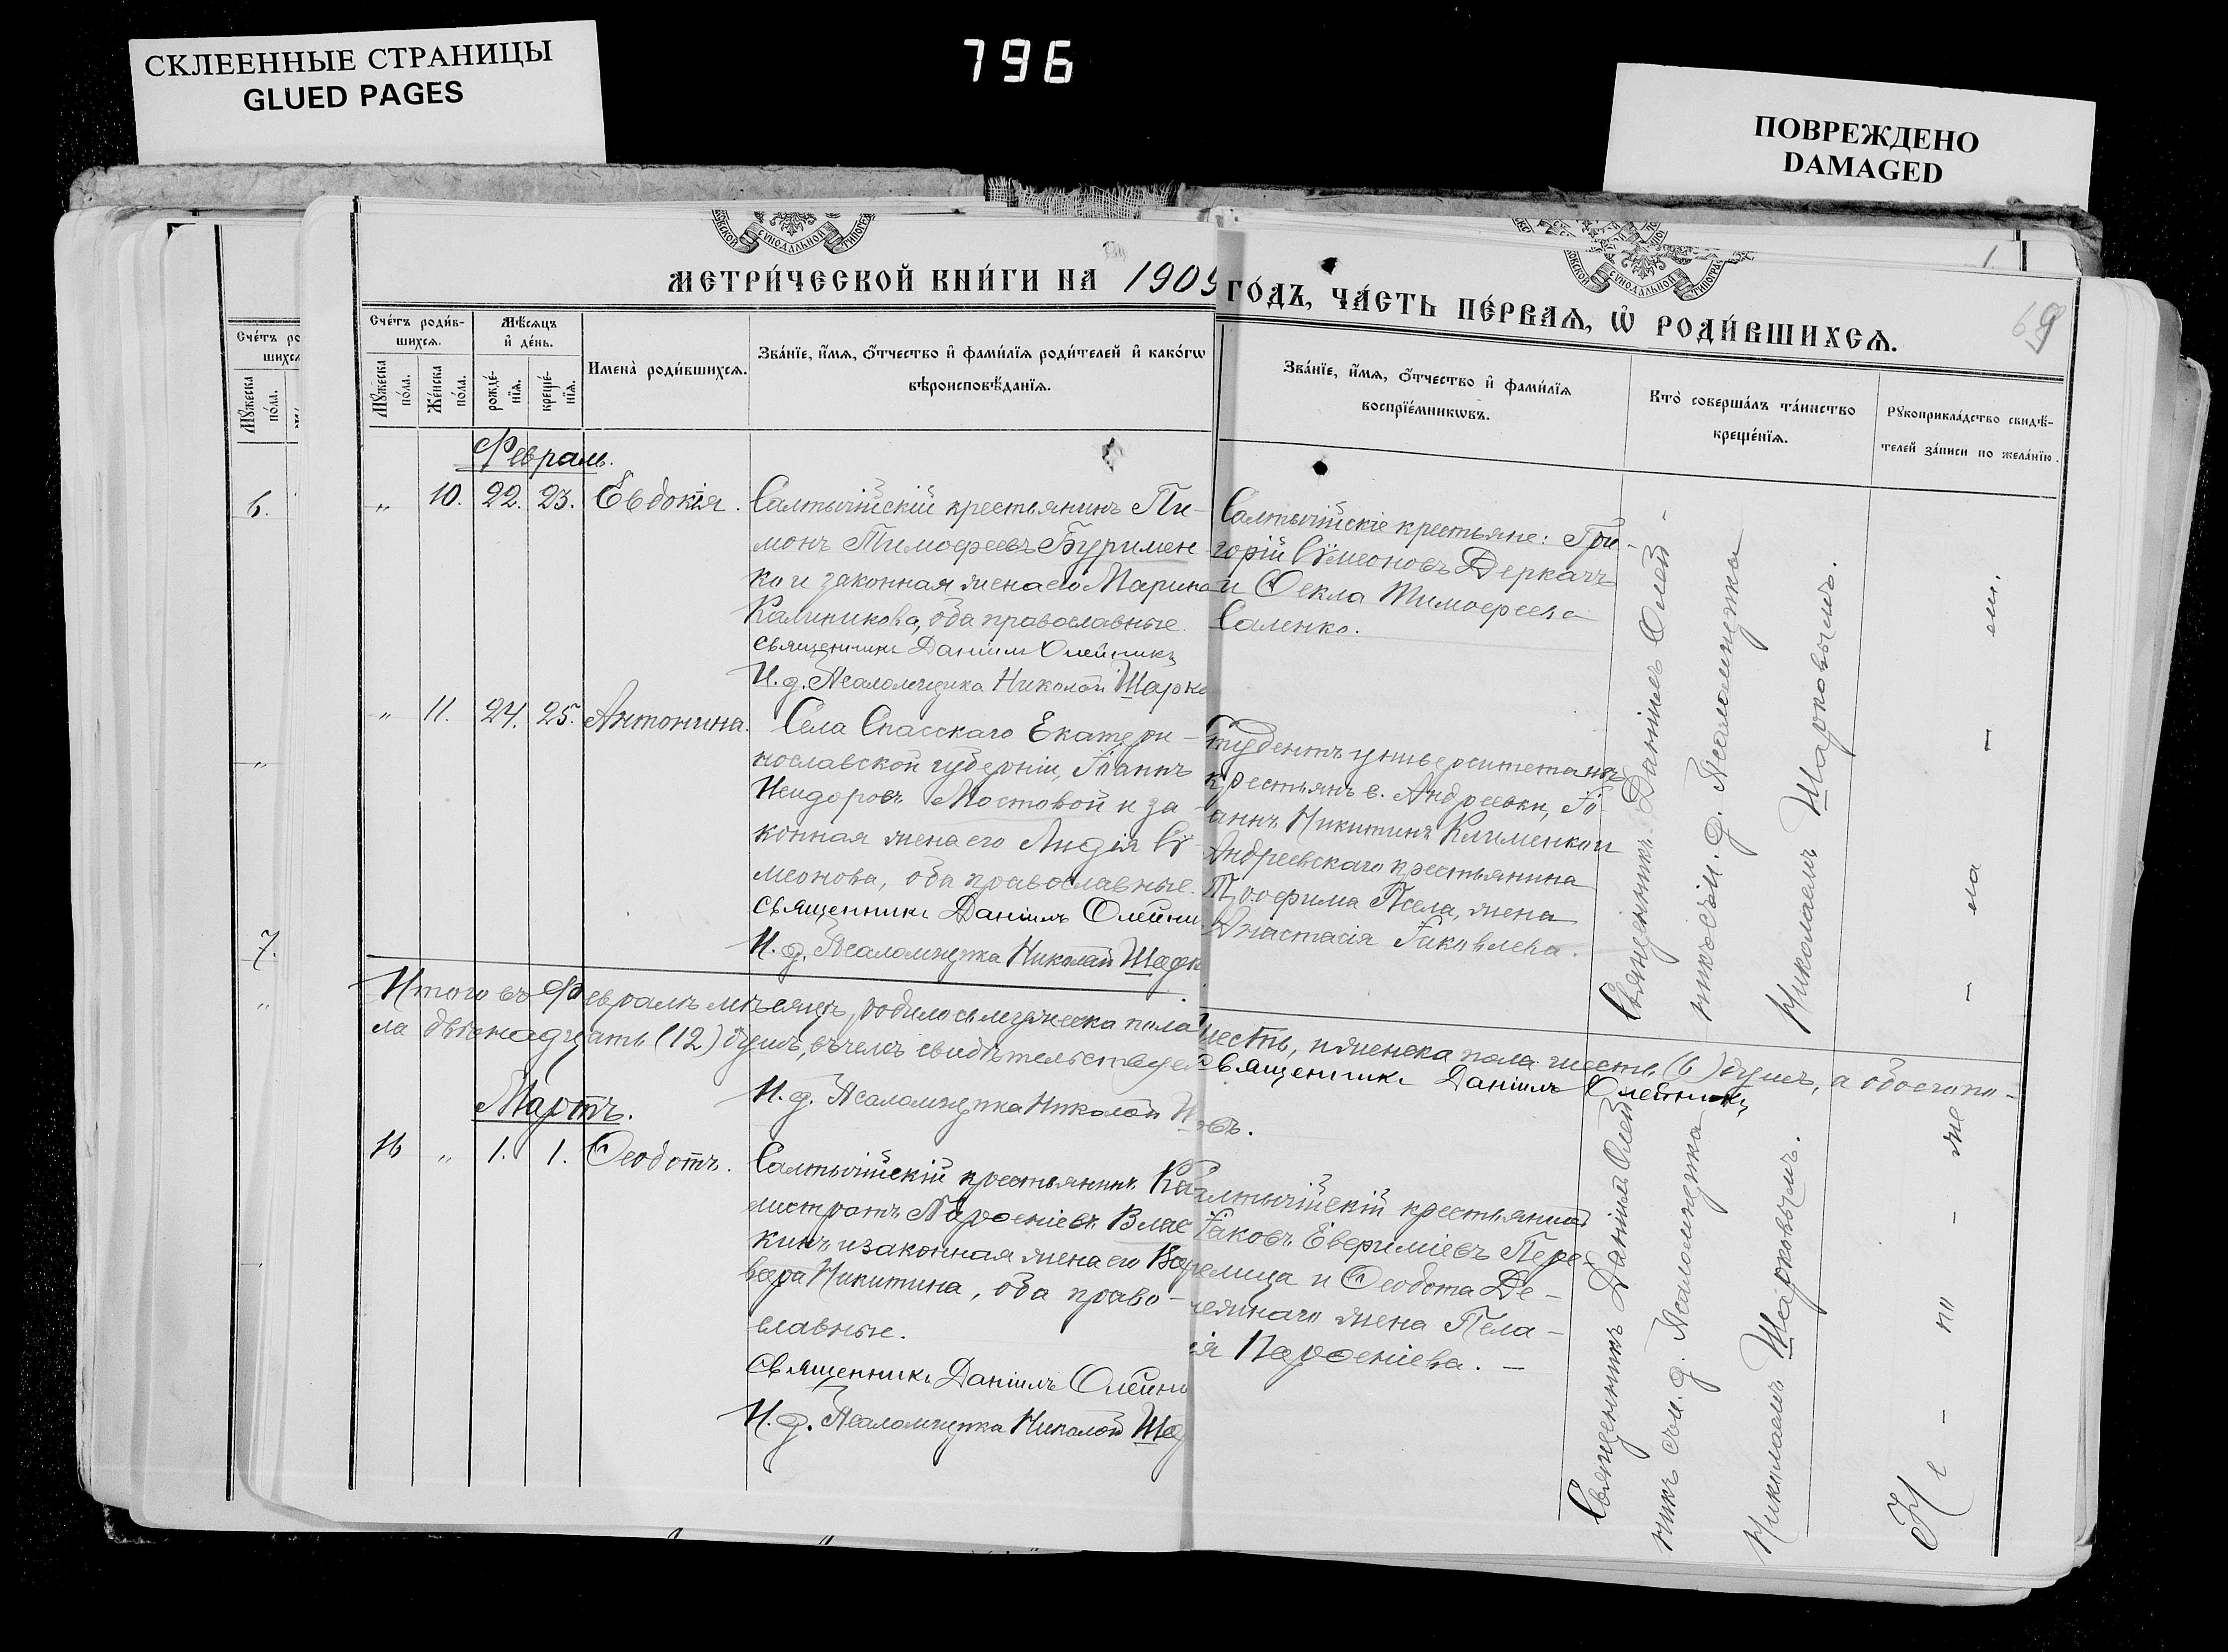 СКЛЕЕННЫЕ СТРАНИЦЫ
GLUED PAGES
796
ПОВРЕЖДЕНО
DAMAGED
МЕТРИ́ЧЕСКОЙ КНИ́ГИ НА 1909
ГО́ДЪ, ЧА́СТЬ ПЕ́РВАѦ, Ѡ РОДИ́ВШИХСѦ.
69
Сче́тъ роди́в-
шихсѧ.
Мꙋ́жеска по́ла.
Же́нска по́ла.
Мѣ́сѧцъ
и҆ де́нь.
рожде́-
нїѧ.
креще́-
нїѧ.
Имена̀ роди́вшихсѧ.
Зва́нїе, и҆́мѧ, ѻ҆́тчество и҆ фами́лїѧ роди́телей и҆ како́гѡ
вѣроисповѣ́данїѧ.
Зва́нїе, и҆́мѧ, ѻ҆́тчество и҆ фами́лїѧ
воспрїе́мникѡвъ.
Кто̀ соверша́лъ та́инство
креще́нїѧ.
Рꙋкоприкла́дство свидѣ́-
телей за́писи по жела́нїю.
Февраль.
„ 10. 22. 23. Евдокія.
Салтычійскій крестьянинъ Пи-
монъ Тимофеевъ Буримен-
ко и законная жена его Марина
Калиникова, оба православные.
Священникъ Даніилъ Олейникъ
И. д. Псаломщика Николай Шарко
Салтычійскіе крестьяне: Гри-
горій Сѵмеоновъ Деркачъ
и Ѳекла Тимофеева
Саленко.
„ 11. 24. 25. Антонина.
Села Спасскаго Екатери-
нославской губерніи, Іоаннъ
Исидоровъ Мостовой и за-
конная жена его Лидія Сѵ-
меонова, оба православные.
Священникъ Даніилъ Олейни
И. д. Псаломщика Николай Шарк
Студентъ университета изъ
крестьянъ с. Андреевки, Іо-
аннъ Никитинъ Клименко и
Андреевскаго крестьянина
Трофима Псела, жена
Анастасія Іаковлева.
Священникъ Даніилъ Олей-
никъ съ и. д. Псаломщика
Николаемъ Шарковымъ.
Итого въ Февралѣ мѣсяцѣ, родилось мужеска пола
шесть, и женска пола шесть (6) душъ, а обоего по-
ла двенадцать (12) душъ, въ чемъ свидѣтельствуемъ
Священникъ Даніилъ Олейникъ
И. д. Псаломщика Николай
Мартъ.
16 „ 1. 1. Ѳеодотъ.
Салтычійскій крестьянинъ Ка-
листратъ Парѳеніевъ Влас
кинъ и законная жена его Вар
вара Никитина, оба право-
славные.
Священникъ Даніилъ Олейни
И. д. Псаломщика Николай Шар
Салтычійскій крестьянинъ
Іаковъ Евфиміевъ Пере-
релица и Ѳеодота Де-
жена Пела-
гія Парѳеніева. —
Священникъ Даніилъ Олей
никъ съ и. д. Псаломщика
Николаемъ Шарковымъ.
Не - по - же - ла - ли.
6.
7.